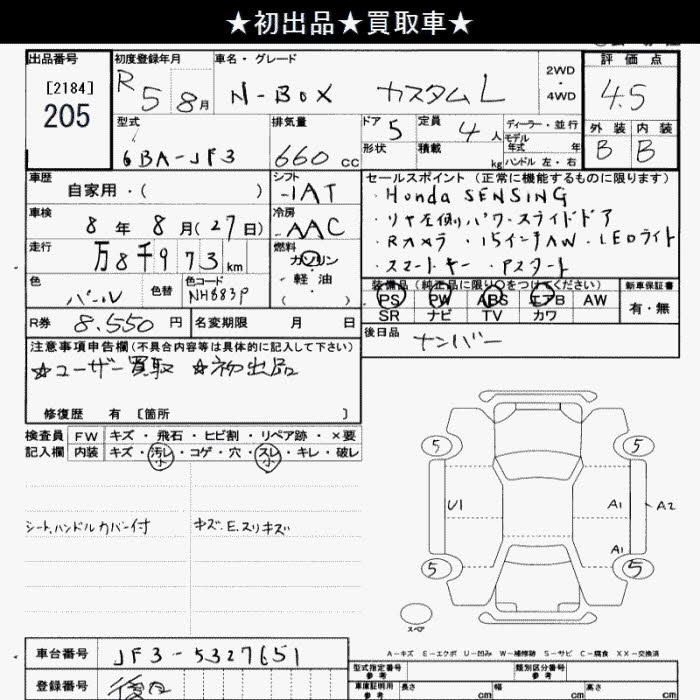 ★初出品★買取車★
出品番号 初度登録年月 車名・グレード 評価点
[2184] 205
R5 8月 N-BOX カスタム L 2WD・4WD 4.5
型式 排気量 ドア 5 定員 4人 ディーラー・並行 外装 内装
6BA-JF3 660 cc 形状 積載 kg モデル年式 年 ハンドル 左・右 B B
車歴 シフト セールスポイント (正常に機能するものに限ります)
自家用・( ) -IAT ・Honda SENSING
車検 8年8月(27日) 冷房 -AAC ・リヤ左側パワースライドドア
走行 万8千973km 燃料 ガソリン・軽油( ) ・Rカメラ ・15インチAW ・LEDライト
・スマートキー ・Pスタート
色 パール 色替 色コード NH883P
装備品 (純正品に限り○をつけてください) 新車保証書
PS PW ABS エアB AW 有・無
SR ナビ TV カワ
R券 8.550円 名変期限 月 日
後日品 ナンバー
注意事項申告欄 (不具合内容等は具体的に記入して下さい)
☆ユーザー買取 ☆初出品
修復歴 有 [箇所 ]
検査員 FW キズ・飛石・ヒビ割・リペア跡・×要
記入欄 内装 キズ・汚レ・コゲ・穴・スレ・キレ・破レ
小 小
シート、ハンドルカバー付 キズ.E.スリキズ
5 5
U1 A1 A2
A1
5 5
スペア
A-キズ E-エクボ U-凹み W-補修跡 S-サビ C-腐食 XX-交換済
車台番号 JF3-5327651
型式指定番号 参考 類別区分番号 参考
登録番号 後日
車庫証明用 参考 長さ cm 幅 cm 高さ cm